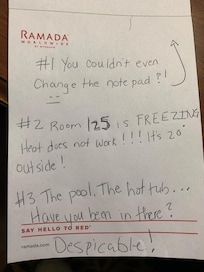 RAMADA
WORLDWIDE
BY WYNDHAM
#1 You couldn't even
Change the note pad?!
#2 Room 125 is FREEZING
Heat does not work!!! It's 20°
outside!
#3 The pool. The hot tub...
Have you been in there?
SAY HELLO TO RED
ramada.com
Despicable!